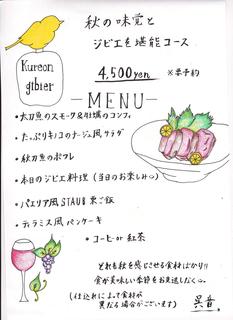 秋の味覚と
ジビエを堪能コース
Kureon
gibier
4,500yen ※要予約
—MENU—
・太刀魚のスモーク&牡蠣のコンフィ
・たっぷりキノコのナージュ風サラダ
・秋刀魚のポワレ
・本日のジビエ料理(当日のお楽しみ♡)
・パエリア風STAUB栗ご飯
・ティラミス風パンケーキ
・コーヒーor紅茶
どれも秋を感じさせる食材ばかり!!
食が美味しい季節をお見逃しなく。
(仕込れによって食材が
異なる場合がございます)
呉音。